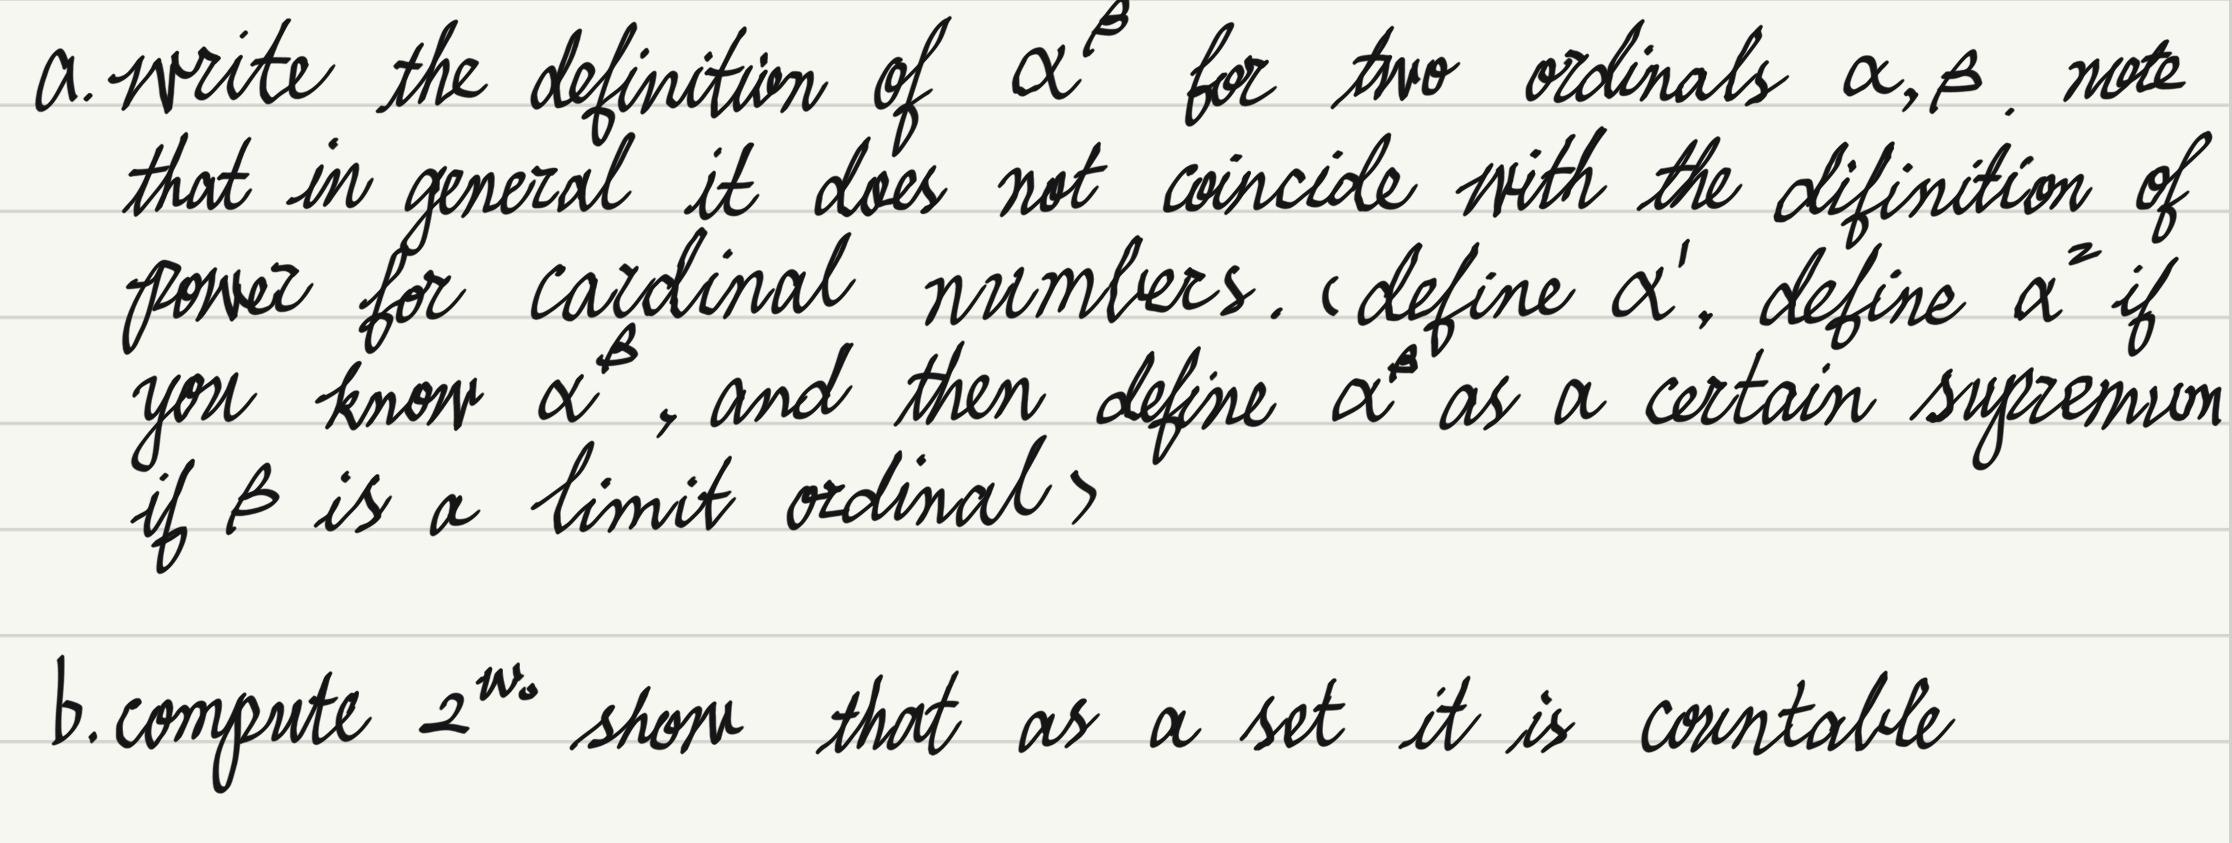 a. write the definition of α^β for two ordinals α, β. note
that in general it does not coincide with the difinition of
power for cardinal numbers. (define α¹, define α² if
you know α^β, and then define α^β as a certain supremum
if β is a limit ordinal)
b. compute 2^w₀ show that as a set it is countable